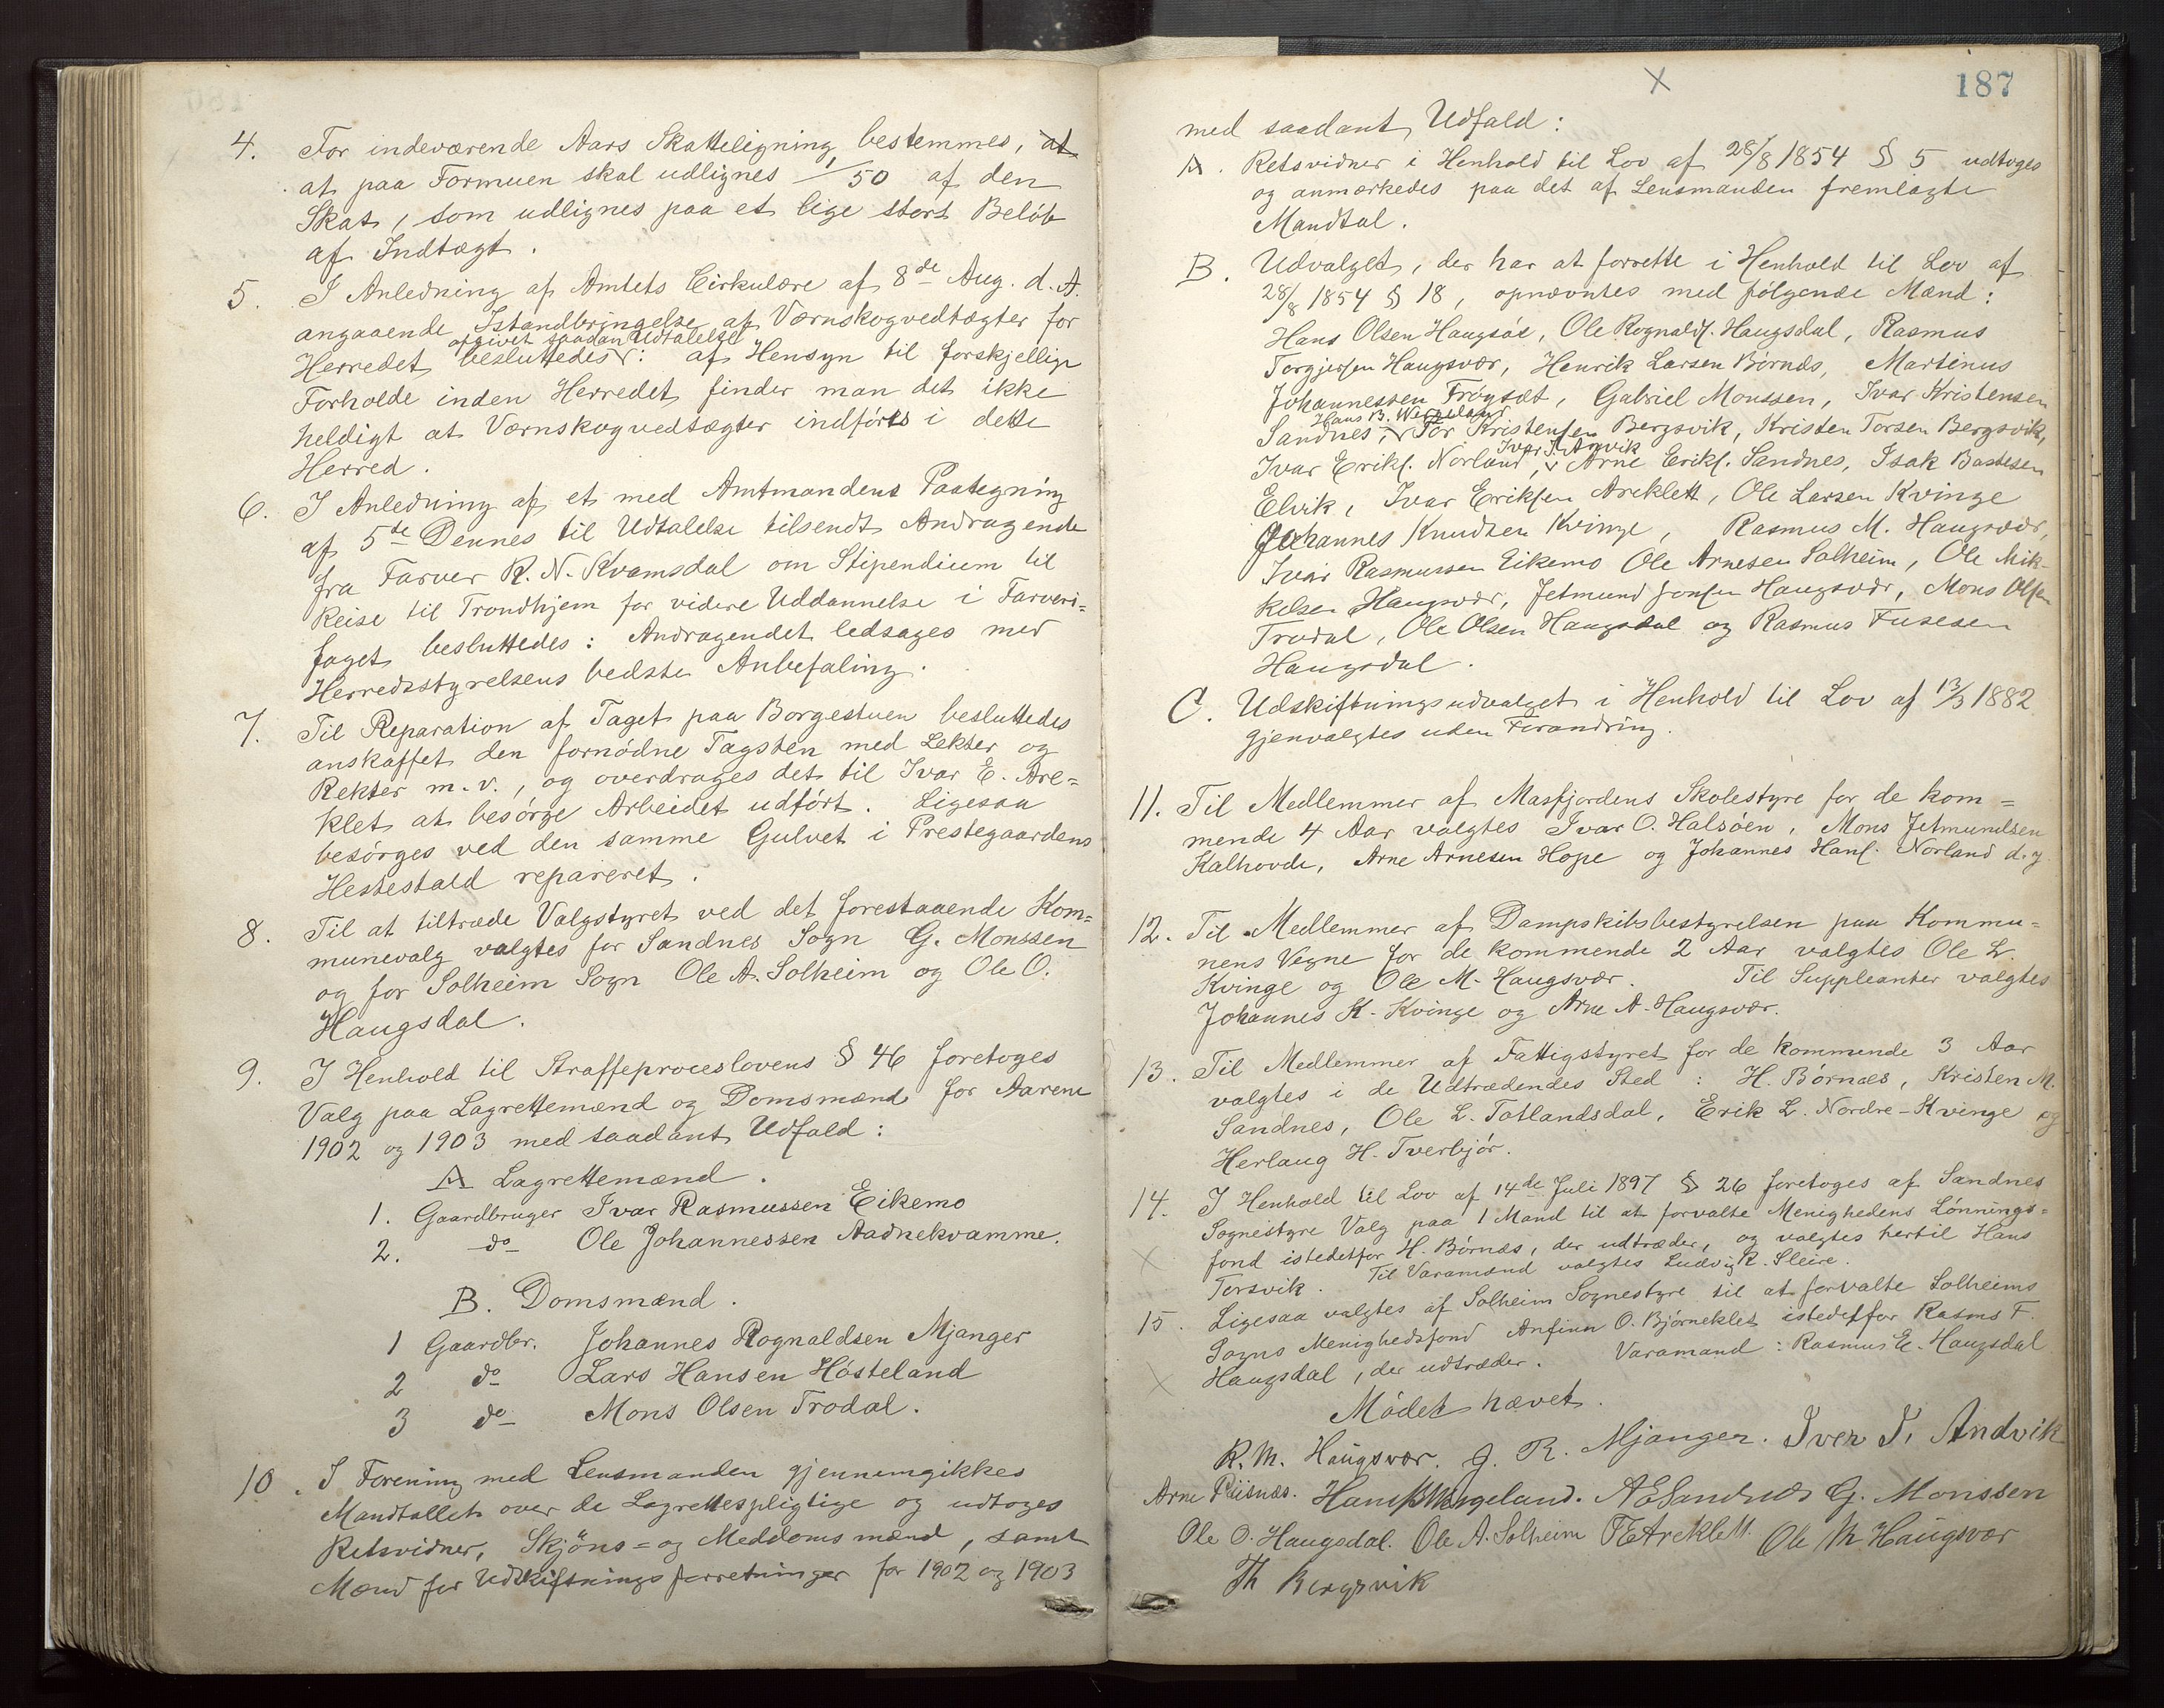 4. For indeværende Aars Skatteligning bestemmes, at
at paa Formuen skal udlignes 1/50 af den
Skat, som udlignes paa et lige stort Beløb
af Indtægt.
5. I Anledning af Amtets Cirkulære af 8de Aug. d. A.
angaaende Istandbringelse af Værnskogvedtægter for
afgivet saadan Udtalelse
Herredet besluttedes: af Hensyn til forskjellige
Forholde inden Herredet finder man det ikke
heldigt at Værnskogvedtægter indføres i dette
Herred.
6. I Anledning af et med Amtmandens Paategning
af 5te Dennes til Udtalelse tilsendt Andragende
fra Farver R. N. Kvamsdal om Stipendium til
Reise til Trondhjem for videre Uddannelse i Farveri-
faget besluttedes: Andragendet ledsages med
Herredsstyrelsens bedste Anbefaling.
7. Til Reparation af Taget paa Borgestuen besluttedes
anskaffet den fornødne Tagsten med Lekter og
Rekter m. v., og overdrages det til Ivar E. Are-
klet at besørge Arbeidet udført. Ligesaa
besørges ved den samme Gulvet i Prestegaardens
Hestestald repareret.
8. Til at tiltræde Valgstyret ved det forestaaende Kom-
munevalg valgtes for Sandnes Sogn G. Monssen
og for Solheim Sogn Ole A. Solheim og Ole O.
Haugsdal.
9. I Henhold til Straffeproceslovens § 46 foretoges
Valg paa Lagrettemænd og Domsmænd for Aarene
1902 og 1903 med saadant Udfald:
A Lagrettemænd.
1. Gaardbruger Ivar Rasmussen Eikemo
2. do Ole Johannessen Aadnekvamme.
B. Domsmænd.
1 Gaardbr. Johannes Rognaldsen Mjanger
2 do Lars Hansen Høsteland
3 do Mons Olsen Trodal.
10. I Forening med Lensmanden gjennemgikkes
Mandtallet over de Lagrettespligtige og udtoges
Retsvidner, Skjøns- og Meddomsmænd, samt
Mænd for Udskiftningsforretninger for 1902 og 1903
187
med saadant Udfald:
A. Retsvidner i Henhold til Lov af 28/8 1854 § 5 udtoges
og anmærkedes paa det af Lensmanden fremlagte
Mandtal.
B. Udvalget, der har at forrette i Henhold til Lov af
28/8 1854 § 18, opnævntes med følgende Mænd:
Hans Olsen Haugsøe, Ole Rognalds. Haugsdal, Rasmus
Torgjersen Haugsvær, Henrik Larsen Børnæs, Martinus
Johannessen Frøyset, Gabriel Monssen, Ivar Kristensen
Hans B. Wergeland
Sandnes, Tor Kristensen Bergsvik, Kristen Torsen Bergsvik,
Ivar I. Anvik
Ivar Eriks. Norland, Arne Eriks. Sandnes, Isak Bastesen
Elvik, Ivar Eriksen Areklett, Ole Larsen Kvinge
Johannes Knudsen Kvinge, Rasmus M. Haugsvær,
Ivar Rasmussen Eikemo Ole Arnesen Solheim, Ole Mik-
kelsen Haugsvær, Jetmund Jonsen Haugsvær, Mons Olsen
Trodal, Ole Olsen Haugsdal og Rasmus Fusesen
Haugsdal.
C. Udskiftningsudvalget i Henhold til Lov af 13/3 1882
gjenvalgtes uden Forandring.
11. Til Medlemmer af Masfjordens Skolestyre for de kom-
mende 4 Aar valgtes Ivar O. Halsøen, Mons Jetmundsen
Kalhovde, Arne Arnesen Hope og Johannes Hans. Norland d.y.
12. Til Medlemmer af Dampskibsbestyrelsen paa Kommu-
nens Vegne for de kommende 2 Aar valgtes Ole L.
Kvinge og Ole M. Haugsvær. Til Suppleanter valgtes
Johannes K. Kvinge og Arne A. Haugsvær.
13. Til Medlemmer af Fattigstyret for de kommende 3 Aar
valgtes i de Udtrædendes Sted: H. Børnæs, Kristen M.
Sandnes, Ole L. Totlandsdal, Erik L. Nordre-Kvinge og
Herlaug H. Tverbjør.
14. I Henhold til Lov af 14de Juli 1897 § 26 foretoges af Sandnes
Sognestyre Valg paa 1 Mand til at forvalte Menighedens Lønnings-
fond istedetfor H. Børnæs, der udtræder, og valgtes hertil Hans
Torsvik. Til Varamænd valgtes Ludvig R. Sleire.
15. Ligesaa valgtes af Solheim Sognestyre til at forvalte Solheims
Sogns Menighedsfond Anfinn O. Bjørneklet istedetfor Rasms F.
Haugsdal, der udtræder. Varamand: Rasmus E. Haugsdal
Mødet hævet.
R. M. Haugsvær. J. R. Mjanger. Iver I. Andvik
Arne Riisnæs. Hans B Wergeland. A E Sandnes G. Monssen
Ole O. Haugsdal. Ole A. Solheim I E Areklett. Ole M Haugsvær
Th Bergsvik